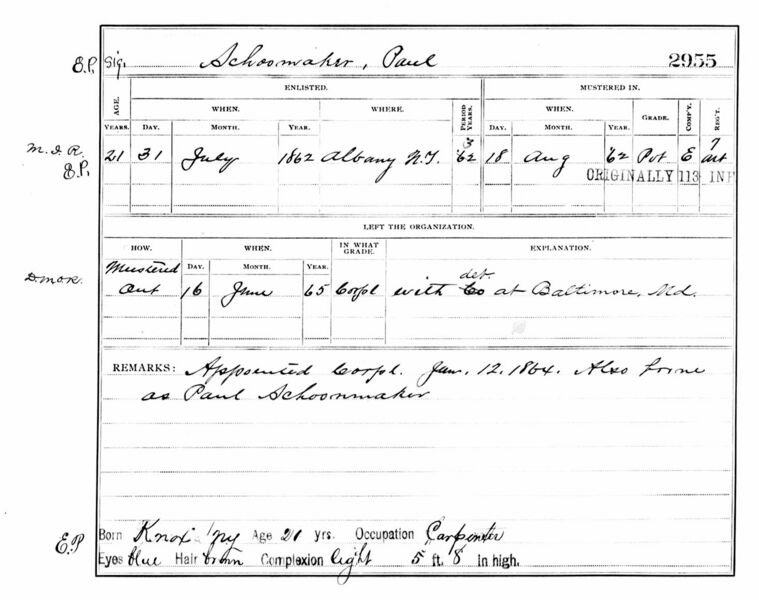 E.P. Sig. Schoomaker, Paul 2955
ENLISTED. MUSTERED IN.
AGE. WHEN. WHERE. PERIOD YEARS. WHEN. GRADE. COMP'Y. REG'T.
YEARS. DAY. MONTH. YEAR. DAY. MONTH. YEAR.
M.I.R. 21 31 July 1862 Albany N.Y. 3 '62 18 Aug '62 Pvt E 7 Art
E.P. ORIGINALLY 113 INF
LEFT THE ORGANIZATION.
HOW. WHEN. IN WHAT GRADE. EXPLANATION.
DAY. MONTH. YEAR.
Mustered det.
D.M.O.R. Out 16 June 65 Corpl with Co at Baltimore, Md.
REMARKS: Appointed Corpl. Jan. 12. 1864. Also borne
as Paul Schoonmaker
E.P Born Knox NY Age 21 yrs. Occupation Carpenter
Eyes blue Hair brown Complexion light 5 ft. 8 in high.